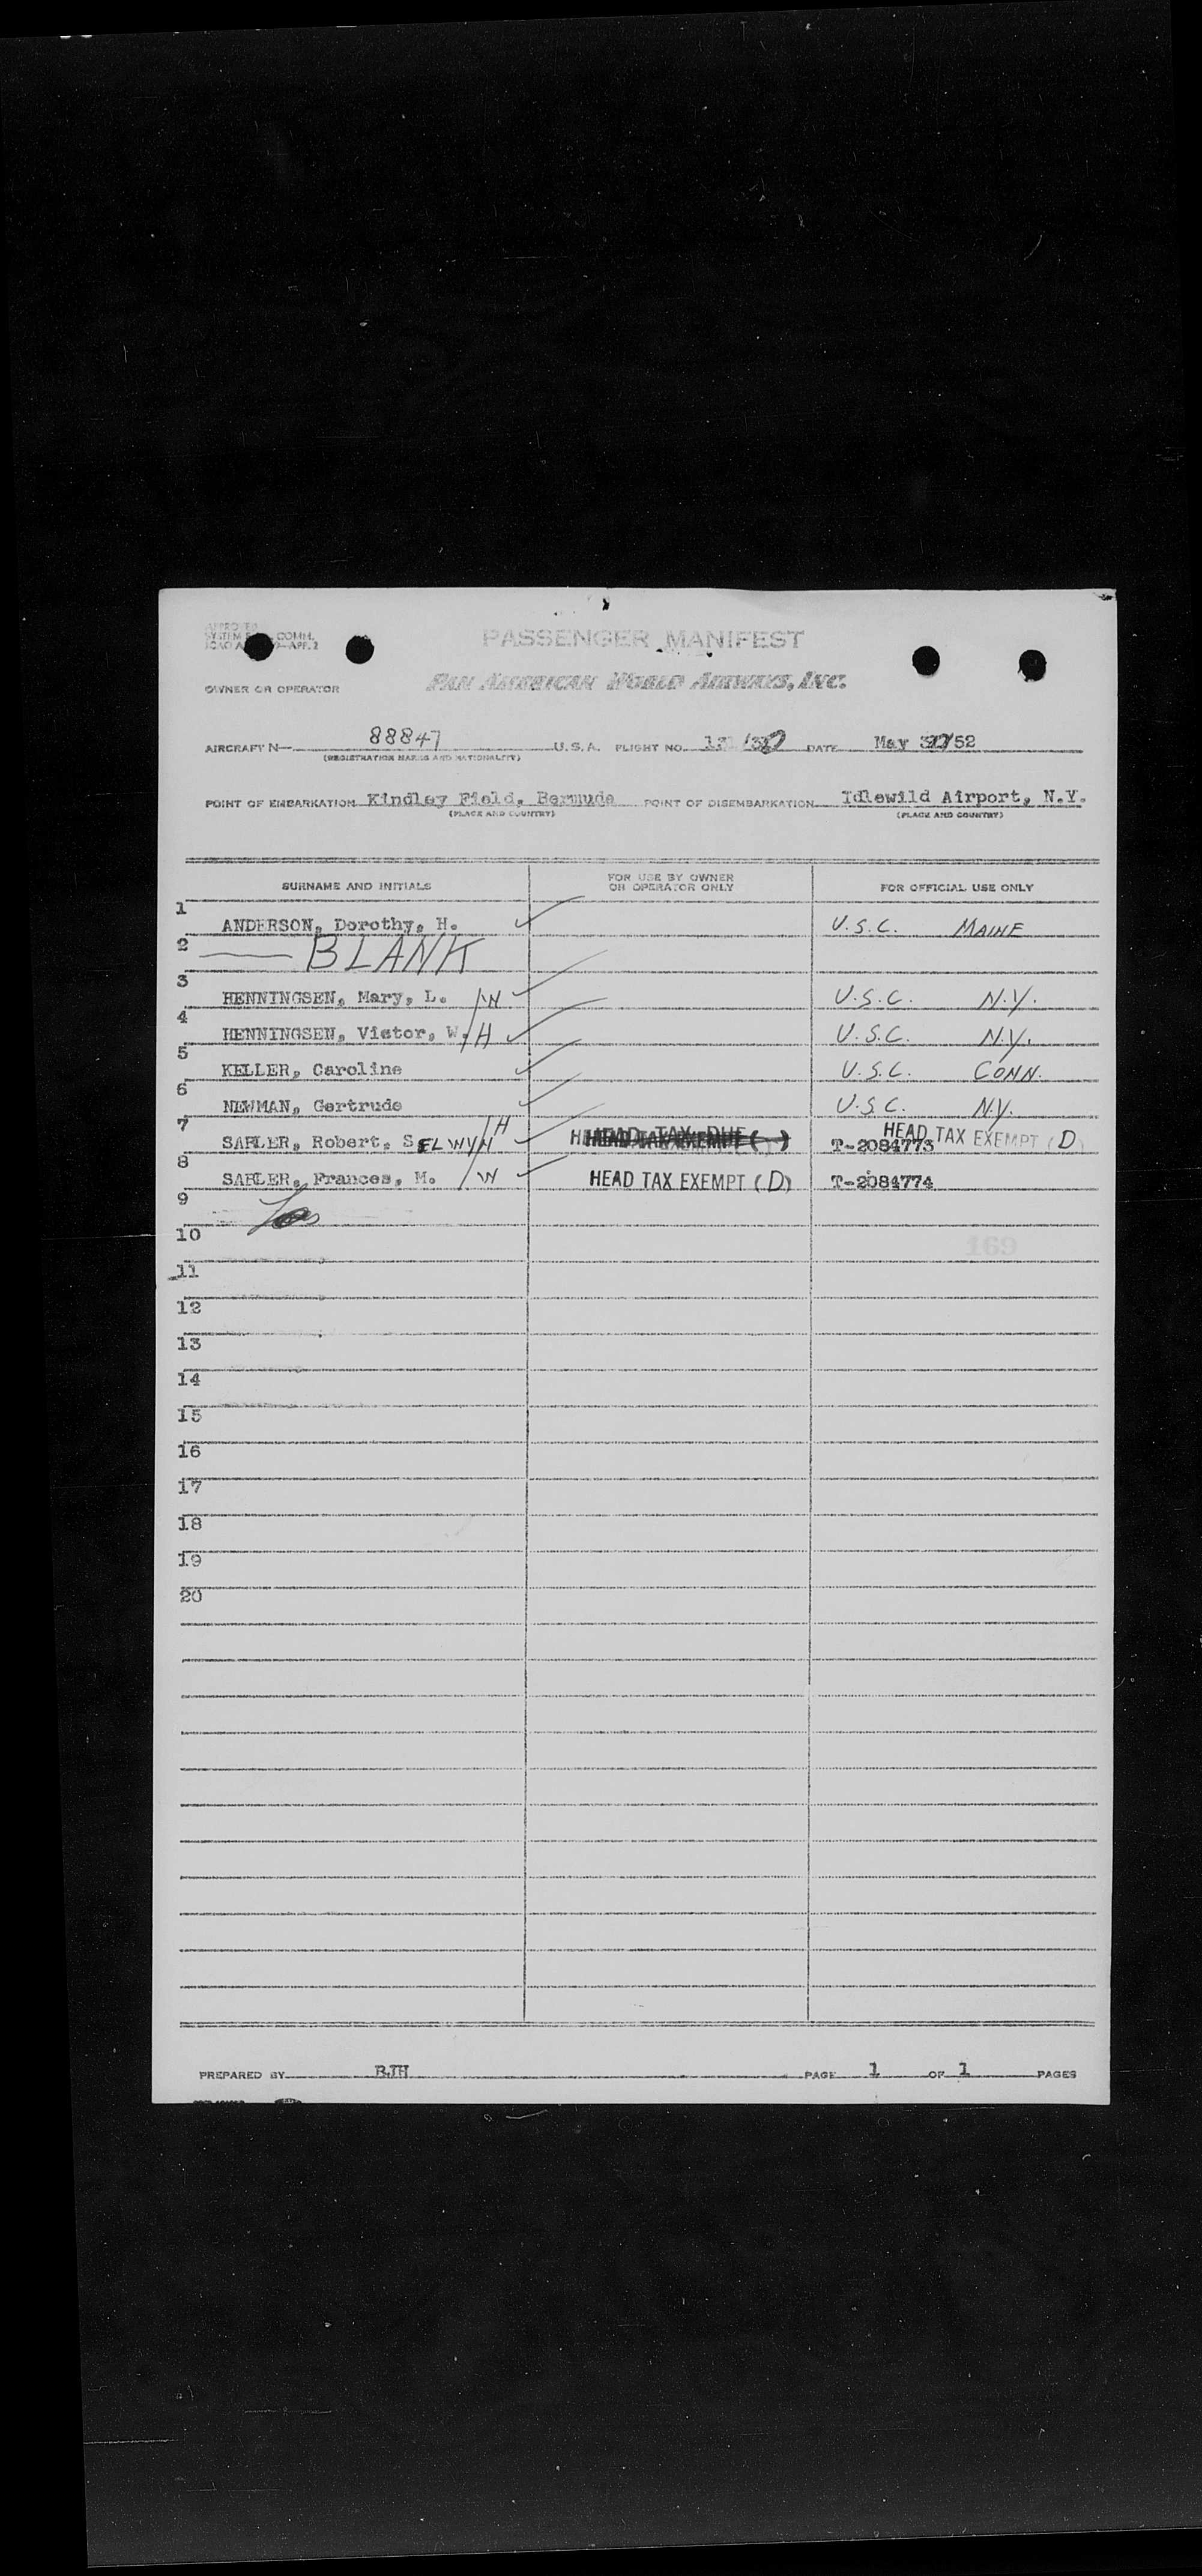 APPROVED
SYSTEM COMM.
APP. 2
PASSENGER MANIFEST
OWNER OR OPERATOR PAN AMERICAN WORLD AIRWAYS, INC.
AIRCRAFT N— 88847 U.S.A. FLIGHT NO. DATE May /52
(REGISTRATION MARKS AND NATIONALITY)
POINT OF EMBARKATION Kindley Field, Bermuda POINT OF DISEMBARKATION Idlewild Airport, N.Y.
(PLACE AND COUNTRY) (PLACE AND COUNTRY)
SURNAME AND INITIALS FOR USE BY OWNER OR OPERATOR ONLY FOR OFFICIAL USE ONLY
1 ANDERSON, Dorothy, H. U.S.C. MAINE
2 BLANK
3 HENNINGSEN, Mary, L. /W U.S.C. N.Y.
4 HENNINGSEN, Victor, W. /H U.S.C. N.Y.
5 KELLER, Caroline U.S.C. CONN.
6 NEWMAN, Gertrude U.S.C. N.Y.
7 Robert, SELWYN /H HEAD TAX DUE T-2084773 HEAD TAX EXEMPT (D)
8 Frances, M. /W HEAD TAX EXEMPT (D) T-2084774
9
10
169
11
12
13
14
15
16
17
18
19
20
PREPARED BY RJH PAGE 1 OF 1 PAGES